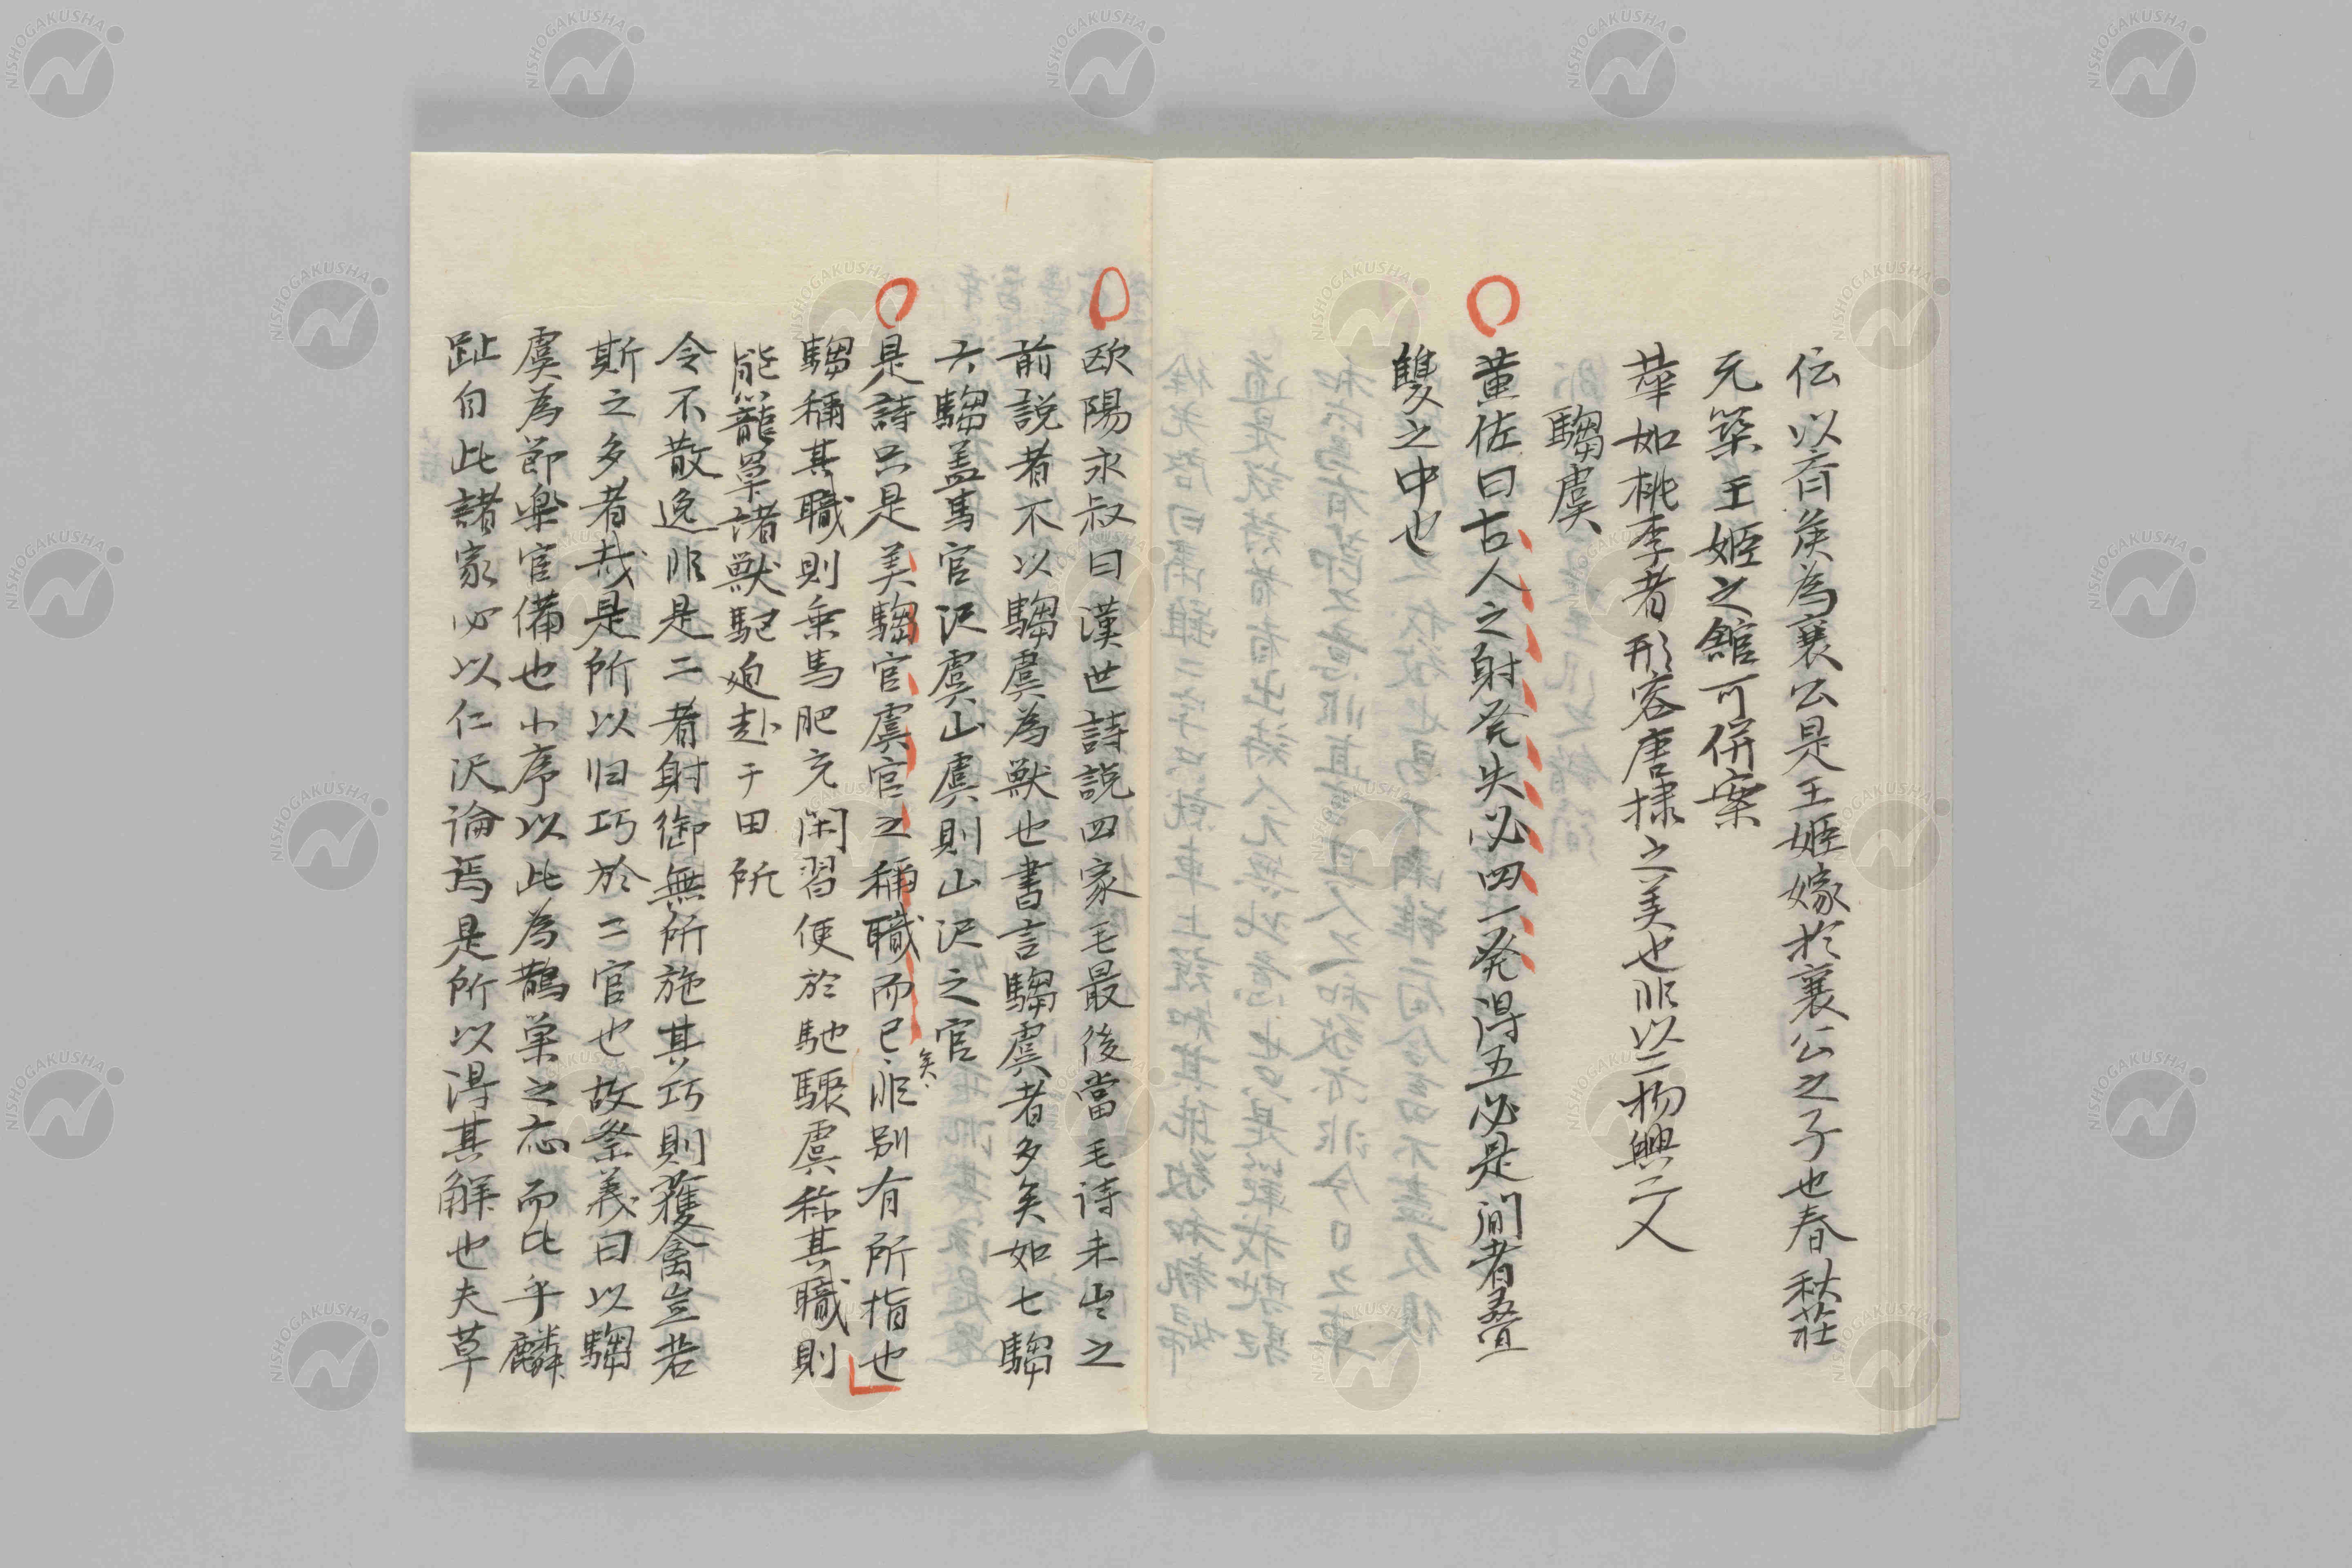 伝以斉侯為襄公是王姬嫁於襄公之子也春秋荘
元築王姬之館可併案
華如桃李者形容唐棣之美也非以二物興二人
騶虞
黄佐曰古人之射発矢必四一発得五必是間者畳
雙之中也
欧陽永叔曰漢世詩説四家毛最後當毛詩未出之
前説者不以騶虞為獣也書言騶虞者多矣如七騶
六騶盖馬官沢虞山虞則山沢之官
是詩只是美騶官虞官之稱職而已矣非別有所指也
騶稱其職則乗馬肥充閑習便於馳驟虞称其職則
能籠罩諸獣駆迫赴于田所
令不散逸非是二者射御無所施其巧則獲禽豈若
斯之多者哉是所以归巧於二官也故祭義曰以騶
虞為節楽官備也小序以此為鵲巣之応而比乎麟
趾自此諸家必以仁沢論焉是所以得其解也夫草